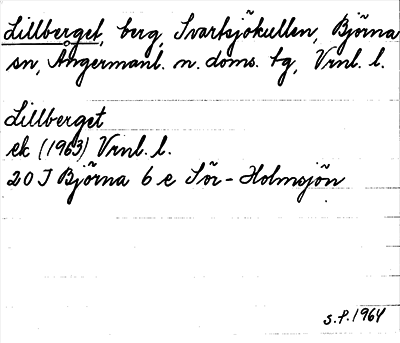 Lillberget, berg, Svartsjökullen, Björna
sn, Ångermanl. n. doms. tg, Vrnl. l.
Lillberget
ek (1963) Vrnl. l.
20 J Björna 6 e Sör-Holmsjön
S.P. 1964